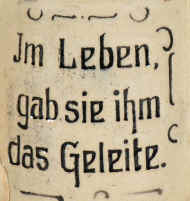 Im Leben,
gab sie ihm
das Geleite.